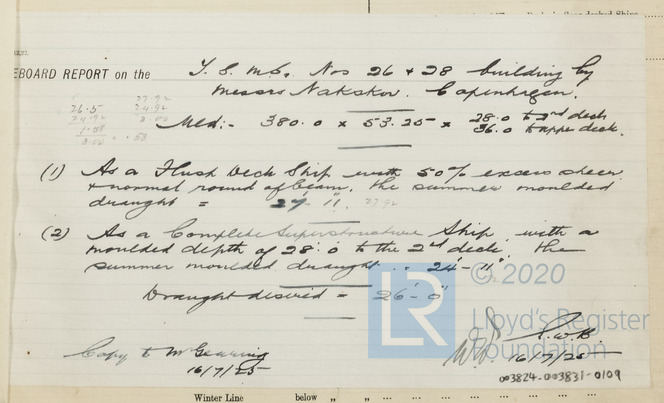 EBOARD REPORT on the
T. S. M.S. Nos 26 + 28 building by
Messrs Nakskov. Copenhagen.
Mld:- 380.0 x 53.25 x 28.0 to 2nd deck
36.0 to upper deck.
26.5
24.92
27.92
24.92
(1) As a Flush Deck Ship with 50% excess sheer
+ normal round of beam, the summer moulded
draught = 27'-11". 27.92
(2) As a Complete Superstructure Ship with a
moulded depth of 28'.0 to the 2nd deck, the
summer moulded draught .. 24'-11"
Draught desired = 26'-0"
© 2020
LR
Lloyd's Register
Foundation
Copy to Mr Gearing
16/7/25
16/7/25
003824-003831-0109
Winter Line below " "